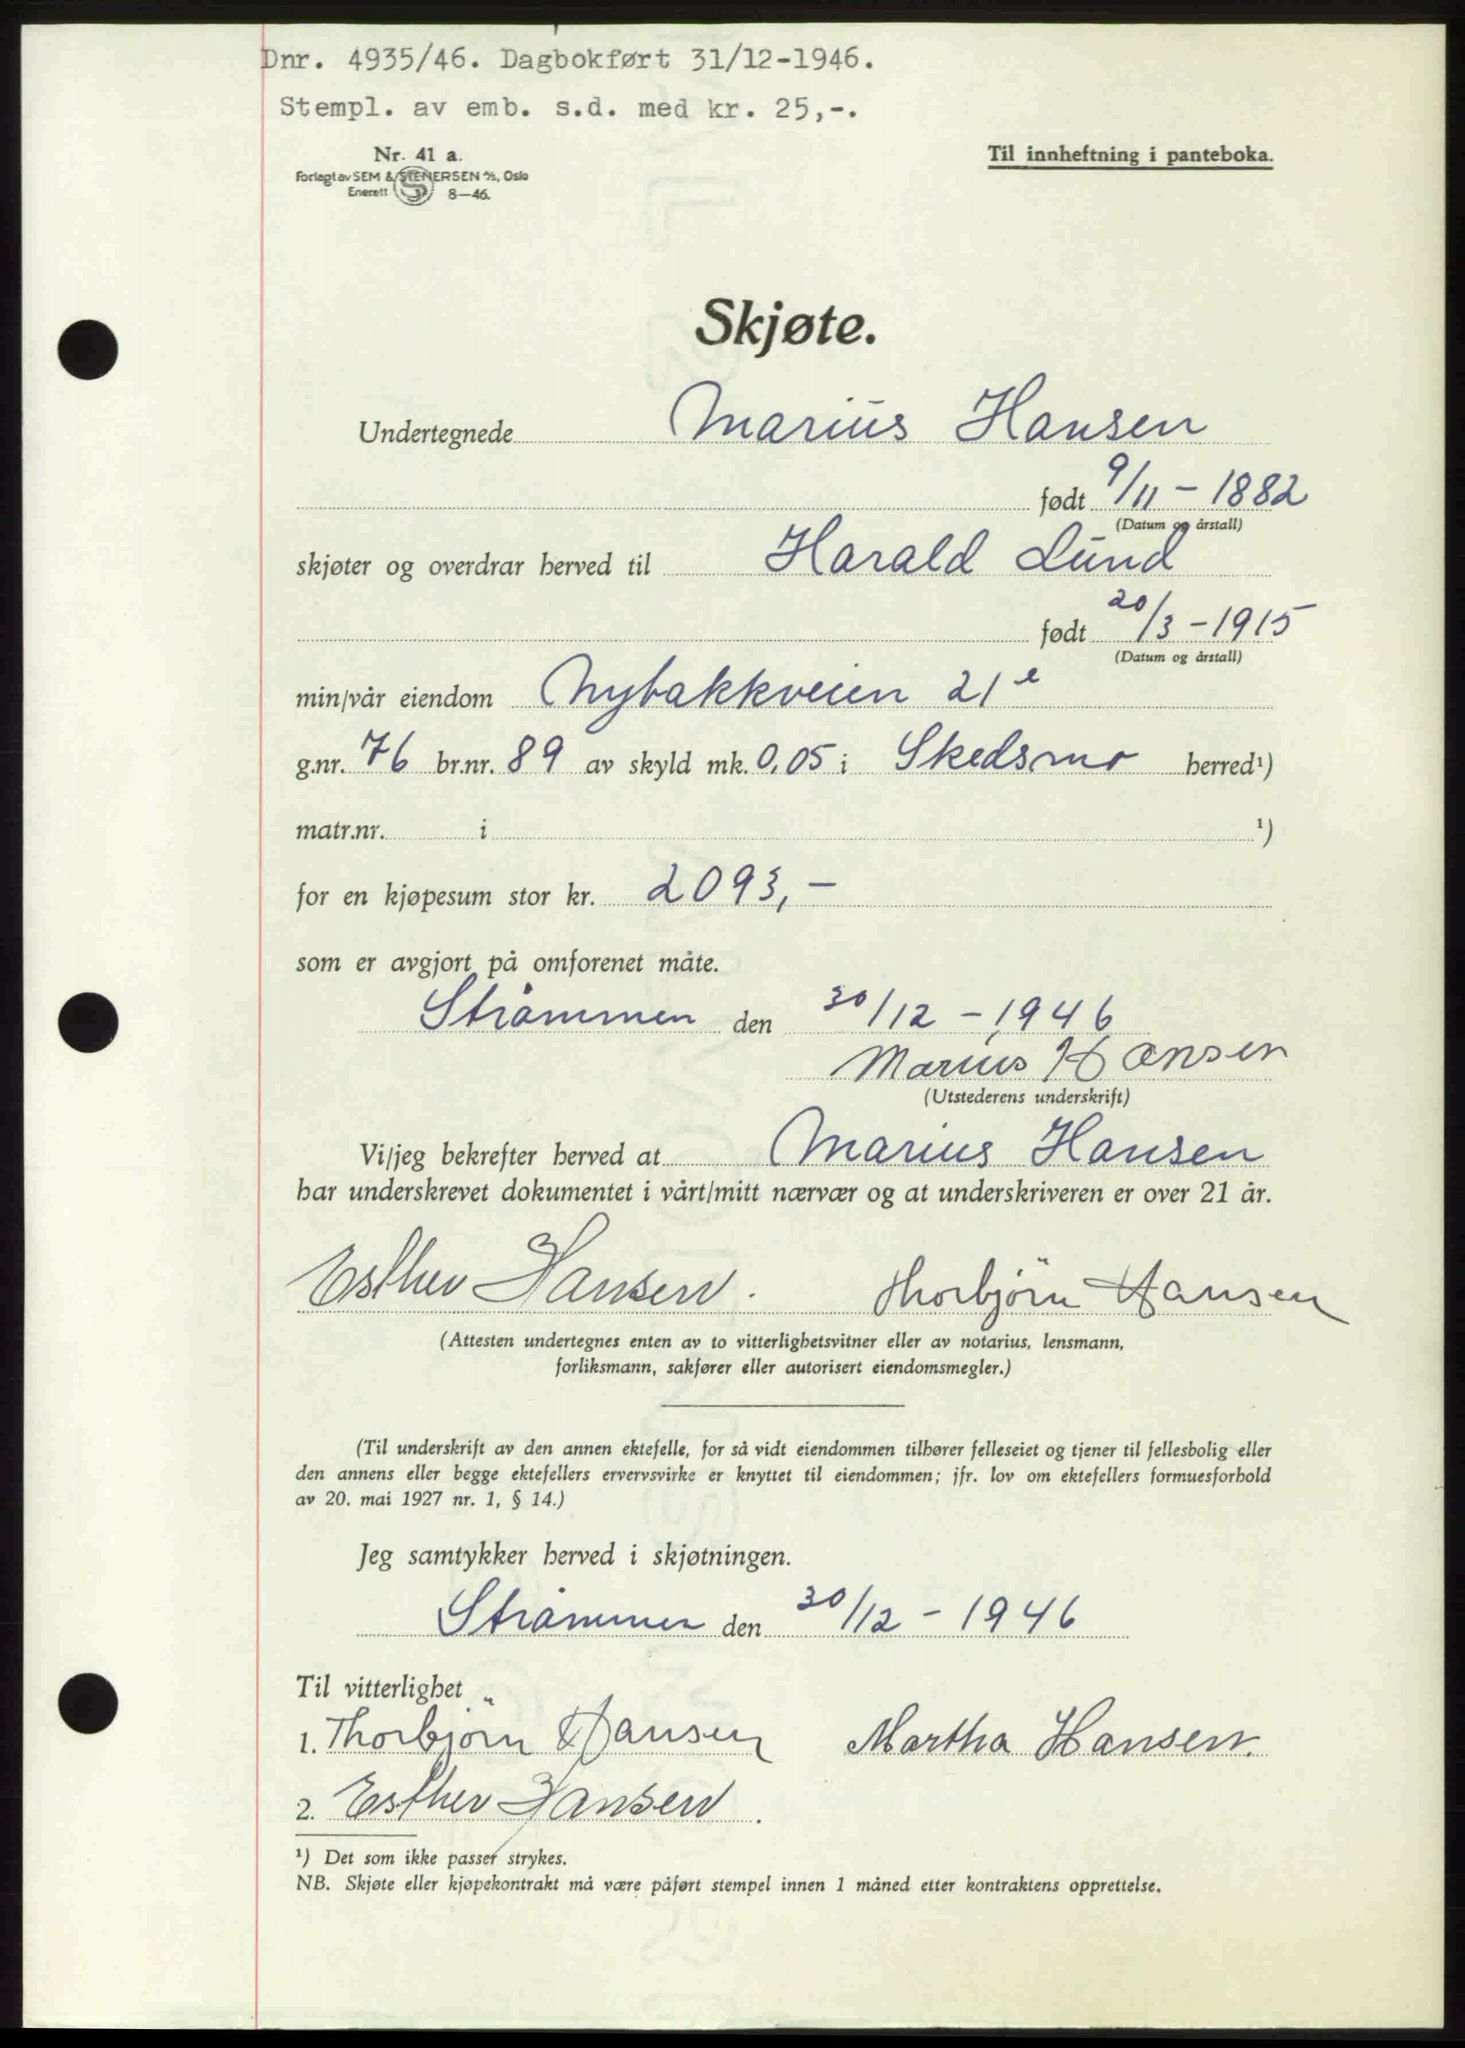 Dnr. 4935/46. Dagbokført 31/12-1946.
Stempl. av emb. s.d. med kr. 25,-.
Nr. 41 a.
Forlagt av SEM & STENERSEN A/S, Oslo
Enerett S 8—46.
Til innheftning i panteboka.
Skjøte.
Undertegnede Marius Hansen
født 9/11 - 1882
(Datum og årstall)
skjøter og overdrar herved til Harald Lund
født 20/3 - 1915
(Datum og årstall)
min/vår eiendom Nybakkveien 21e
g.nr. 76 br.nr. 89 av skyld mk. 0,05 i Skedsmo herred¹)
matr.nr. i ¹)
for en kjøpesum stor kr. 2093,-
som er avgjort på omforenet måte.
Strømmen den 30/12 - 1946
Marius Hansen
(Utstederens underskrift)
Vi/jeg bekrefter herved at Marius Hansen
har underskrevet dokumentet i vårt/mitt nærvær og at underskriveren er over 21 år.
Esther Hansen. Thorbjörn Hansen
(Attesten undertegnes enten av to vitterlighetsvitner eller av notarius, lensmann,
forliksmann, sakfører eller autorisert eiendomsmegler.)
(Til underskrift av den annen ektefelle, for så vidt eiendommen tilhører felleseiet og tjener til fellesbolig eller
den annens eller begge ektefellers ervervsvirke er knyttet til eiendommen; jfr. lov om ektefellers formuesforhold
av 20. mai 1927 nr. 1, § 14.)
Jeg samtykker herved i skjøtningen.
Strømmen den 30/12 - 1946
Til vitterlighet
1. Thorbjörn Hansen Martha Hansen.
2. Esther Hansen.
¹) Det som ikke passer strykes.
NB. Skjøte eller kjøpekontrakt må være påført stempel innen 1 måned etter kontraktens opprettelse.